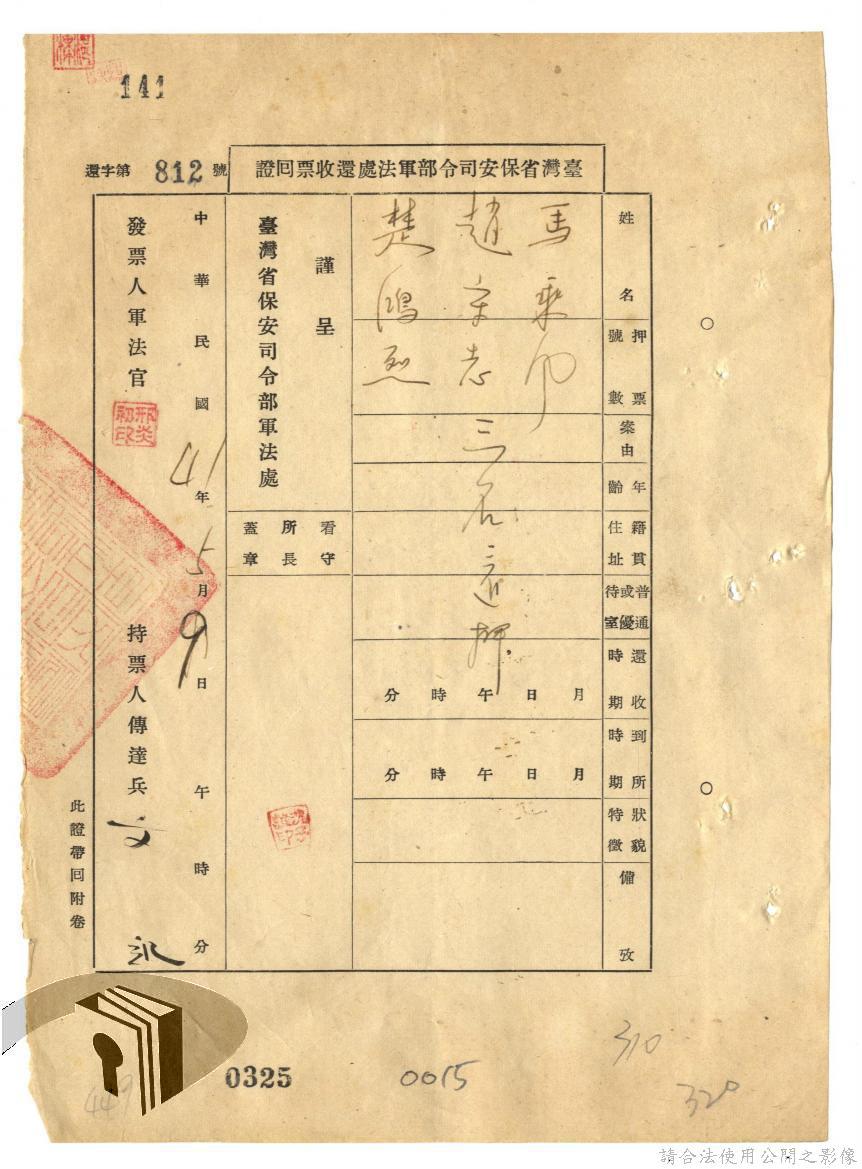 141
臺灣省保安司令部軍法處還收票囘證
還字第812號
姓名
押票號數
案由
年齡
籍貫住址
普通或優待室
還收時期
到所時期
狀貌特徵
備攷
馬乘
趙宗志
楚鴻烈
三名還押
月日午時分
月日午時分
謹呈
臺灣省保安司令部軍法處
看守所長蓋章
中華民國41年5月9日午時分
發票人軍法官
邢炎初印
持票人傳達兵
此證帶囘附卷
0325
0015
310
320
449
請合法使用公開之影像